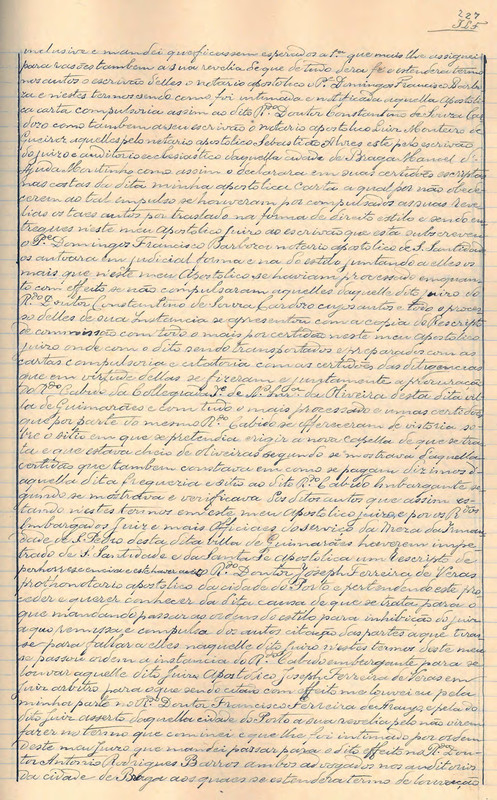 227
inclusive e mandei que ficassem esperados a 1ª que mais lhe assignei
para razões tambem a sua revelia. Segue de tudo dera fé e estendera termo
nos autos o escrivão delles o notario apostolico Pe. Domingos Francisco Barbo
za e nestes termos sendo como foi intimada e notificada aquella Apostoli
ca carta compulsoria assim ao dito Rdo. Doutor Constantino de Souza Car
dozo como tambem a seu escrivão o notario apostolico Luiz Monteiro de
Queiroz aquelles pelo notario apostolico Sebastião Alvres este pelo escrivão
do juizo e auditorio ecclesiastico daquella cidade de Braga Manuel d'
Ajuda Moutinho como assim o declararam em suas certidões escriptas
nas costas da dita minha apostolica carta a qual por não obede
cerem ao tal empulso se houveram por compulsados as suas reve
lias os taes autos por traslado na forma de direito estilo e sendo en
tregues neste meu Apostolico juizo ao escrivão que esta subscreveu
o Pe. Domingos Francisco Barboza notario apostolico de S. Santidade
os autuara em judicial forma e na do estilo, juntando a elles os
mais que n'este meu Apostolico se haviam processado emquan
to com effeito se não compulsaram aquelles daquelle dito juizo do
Rdo. Doutor Constantino de Souza Cardozo cujos autos e todo o proces
so delles de sua instancia se apresentou com a copia do Rescripto
de commissão com tudo o mais por certidão neste meu apostolico
juizo onde com o dito sendo transportados e preparados com as
cartas compulsoria e citatoria com as certidões das diligencias
que em virtude dellas se fizeram e juntamente a procuração
do Rdo. Cabido da Collegiada de N. Snra. da Oliveira desta dita vil
la de Guimarães e com tudo o mais processado e umas certidões
que por parte do mesmo Rdo. Cabido se offereceram de vistoria so
bre o sitio em que se pretendia erigir a nova capella de que se tra
ta e que estava cheio de oliveiras segundo se mostrava daquella
certidão que tambem constava em como se pagam dizimos d'
aquella dita freguezia e sitio ao dito Rdo. Cabido Embargante se
gundo se mostrava e verificava dos ditos autos que assim es
tando n'estes termos em este meu Apostolico juizo e por os Rdos.
Embargados Juiz e mais Officiaes do serviço da Meza da Irman
dade de S. Pedro desta dita billa de Guimarães haverem impe
trado de S. Santidade e da Santa Sé Apostolica um Rescripto de
Rdo. Doutor Joseph Ferreira de Veras
prothonotario apostolico da cidade do Porto e pertendendo este pro
ceder e querer conhecer da dita causa de que se trata para o
que mandando passar as ordens do estilo para inhibição do juiz
a quo remessa e compulsa dos autos citação das partes a que tiras
se para fallar a elles naquelle dito juizo n'estes termos deste meu
se passou ordem a instancia do Rdo. Cabido embargante para se
louvar aquelle dito juiz Apostolico Joseph Ferreira de Veras em
juiz arbitro para o que sendo citado com effeito me louvei eu pela
minha parte no Rdo. Doutor Francisco Ferreira de Araujo e pela do
dito juiz asserto daquella cidade do Porto a sua revelia pelo não virem
fazer no termo que cominei e que lhe foi intimado por ordem
deste meu juizo que mandei passar para o dito effeito no Rdo. Dou
tor Antonio Rodrigues Barros ambos advogados nos auditorios
da cidade de Braga aos quaes se estendera termo de louvação